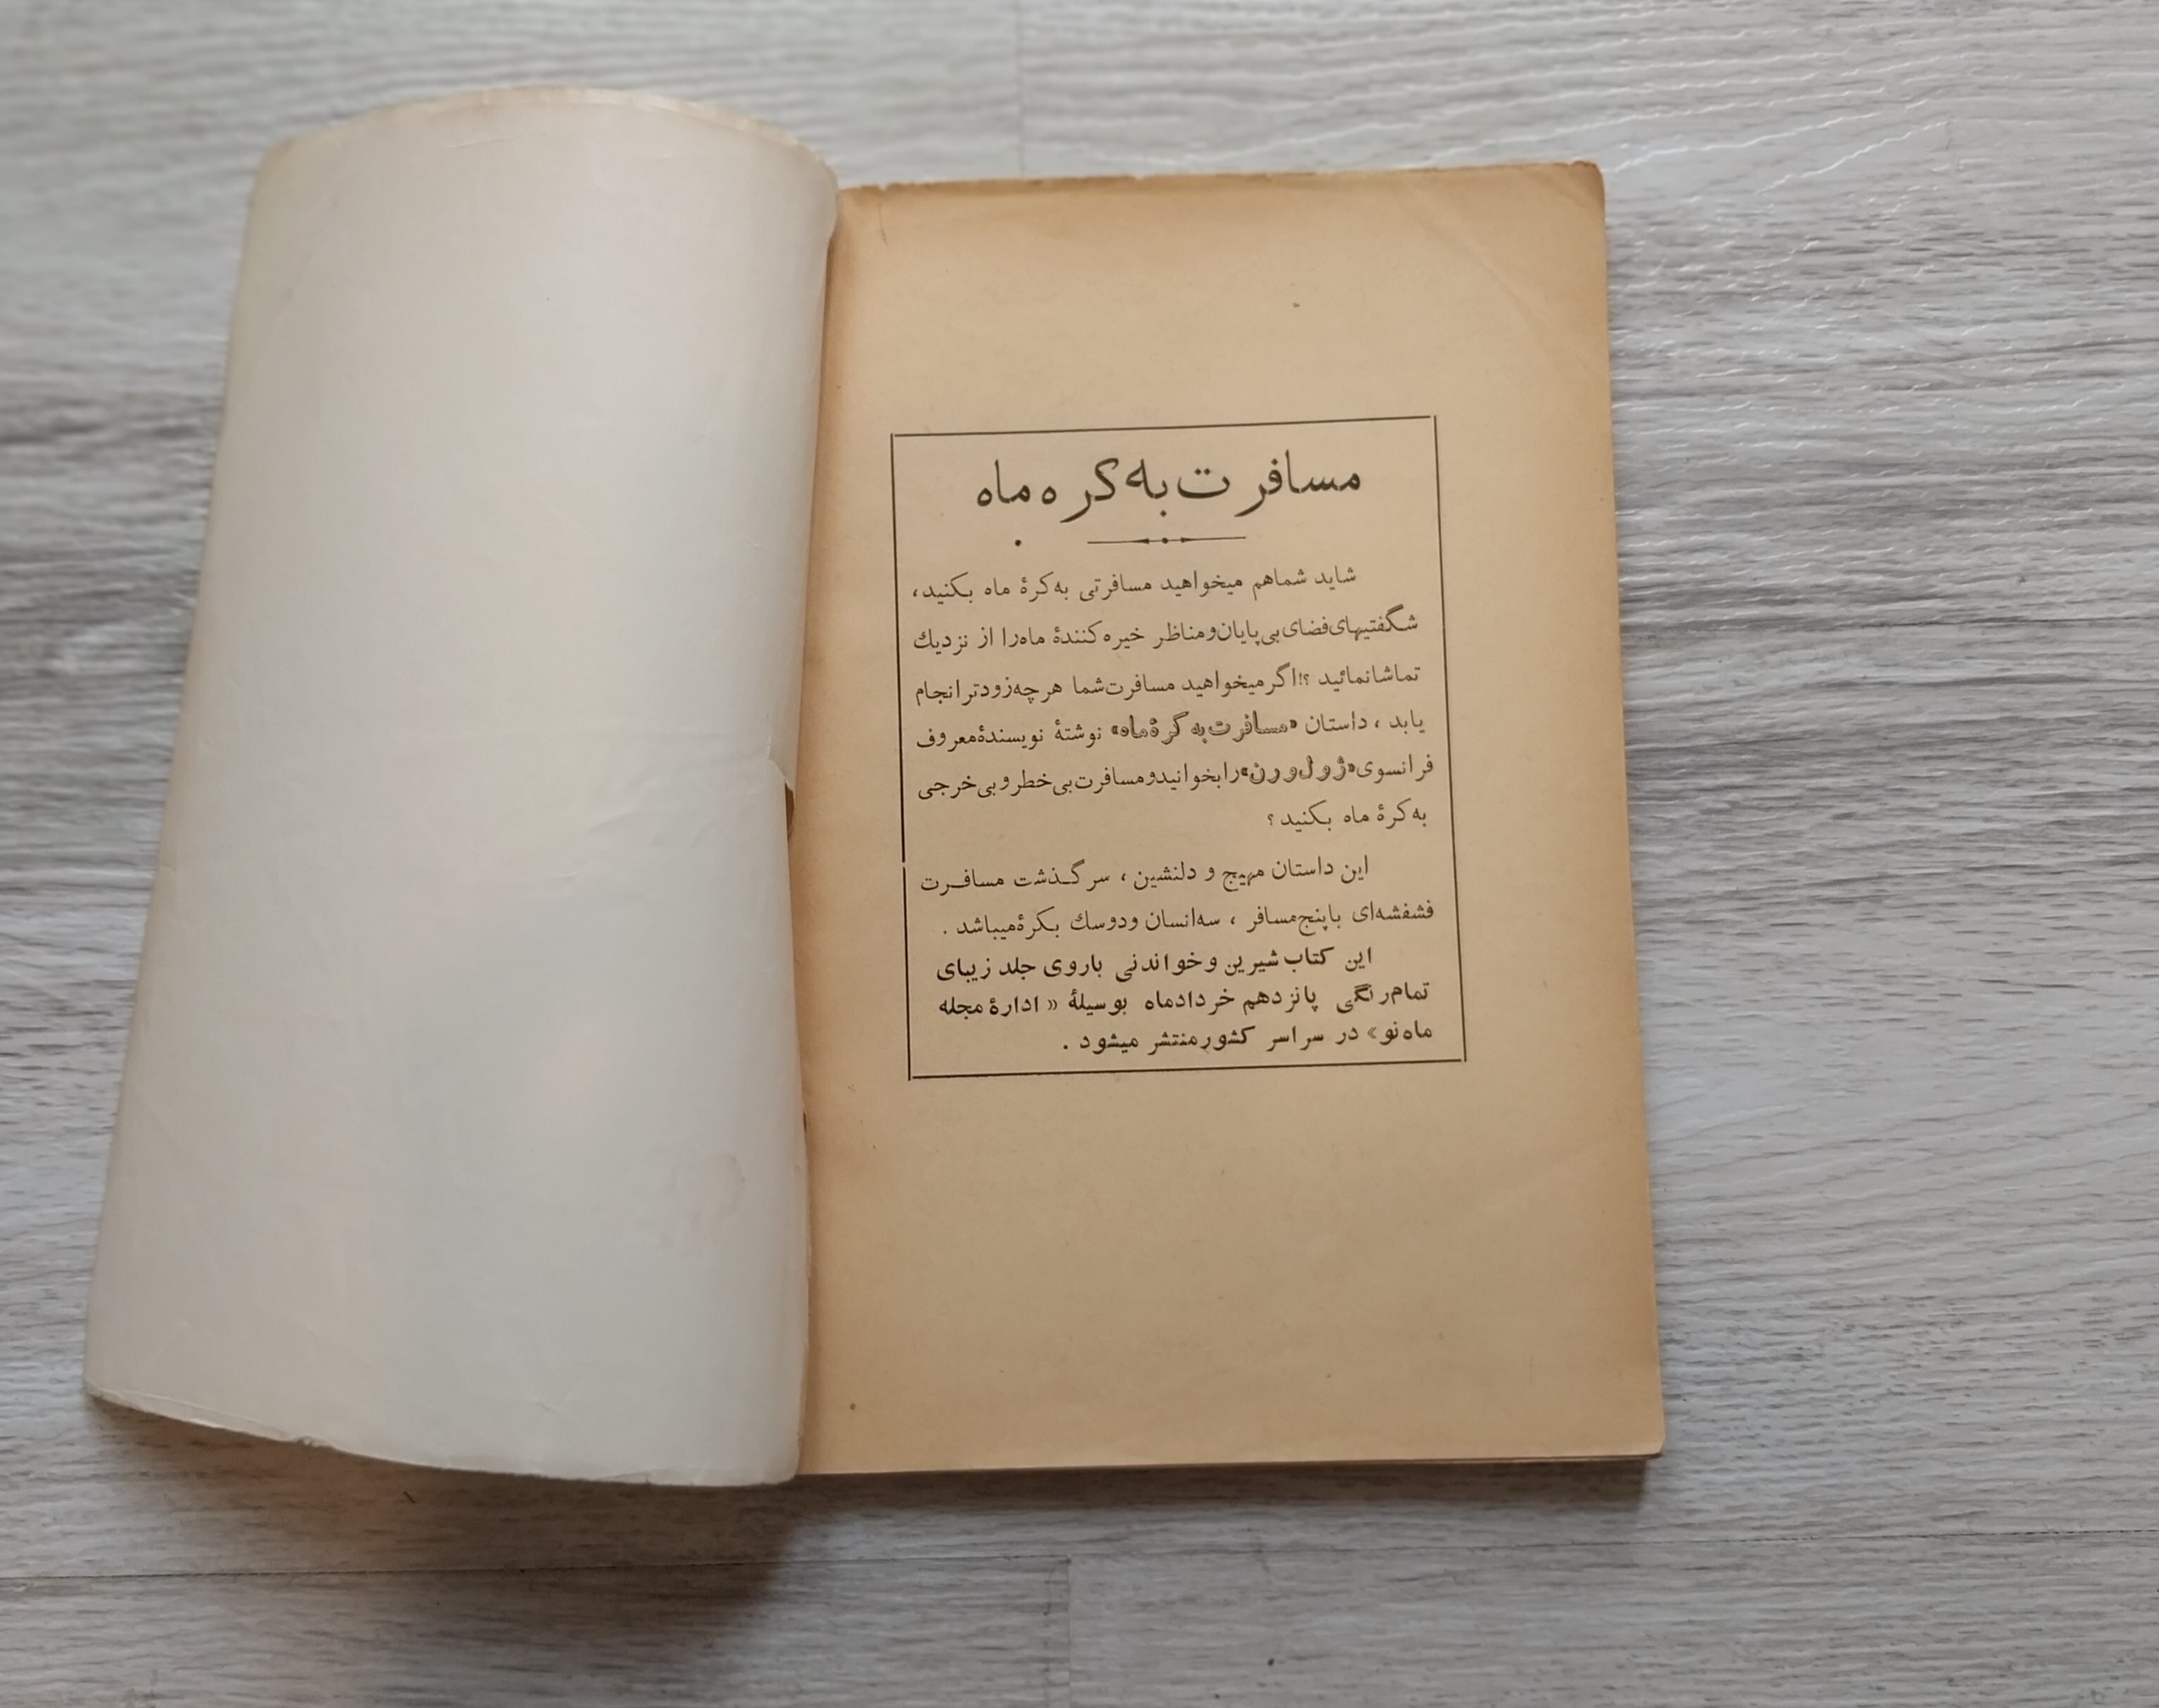 مسافرت به کره ماه
شاید شماهم میخواهید مسافرتی به‌کرهٔ ماه بکنید،
شگفتیهای‌فضای‌بی‌پایان‌ومناظر خیره‌کنندهٔ ماه‌را از نزدیك
تماشانمائید ؟!اگرمیخواهید مسافرت‌شما هرچه‌زودترانجام
یابد ، داستان «مسافرت‌به کرهٔ‌ماه» نوشتهٔ نویسندهٔ‌معروف
فرانسوی«ژول‌ورن»رابخوانیدومسافرت‌بی‌خطروبی‌خرجی
به‌کرهٔ ماه بکنید ؟
این داستان مهیج و دلنشین ، سرگذشت مسافرت
فشفشه‌ای باپنج‌مسافر ، سه‌انسان ودوسك بکرهٔ‌میباشد .
این کتاب‌شیرین وخواندنی باروی جلد زیبای
تمام‌رنگی پانزدهم خردادماه بوسیلهٔ « ادارهٔ مجله
ماه‌نو» در سراسر کشورمنتشر میشود .